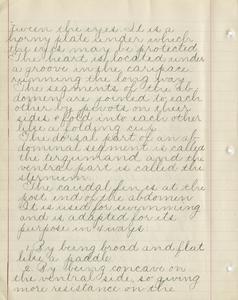 tween the eyes. It is a
horny plate under which
the eyes may be protected
The heart is located under
a groove in the carapace
running the long way.
The segments of the ab-
domen are joined to each
other by pivots on their
sides & fold into each other
like a folding cup.
The dorsal part of an ab-
dominal segment is called
the tergum and and the
ventral part is called the
sternum.
The caudal fin is at the
post end of the abdomen
It is used for swimming
and is adapted for its
purpose in 4 ways.
1. By being broad and flat
like a paddle
2. By being concave on
the ventral side, so giving
more resistance on the